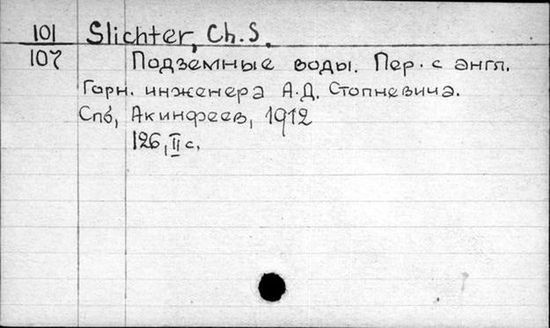 101 Slichter, Ch. S.
107 Подземные воды. Пер. с англ.
Горн. инженера А.Д. Стопневича.
Спб, Акинфеев, 1912
126, II с.